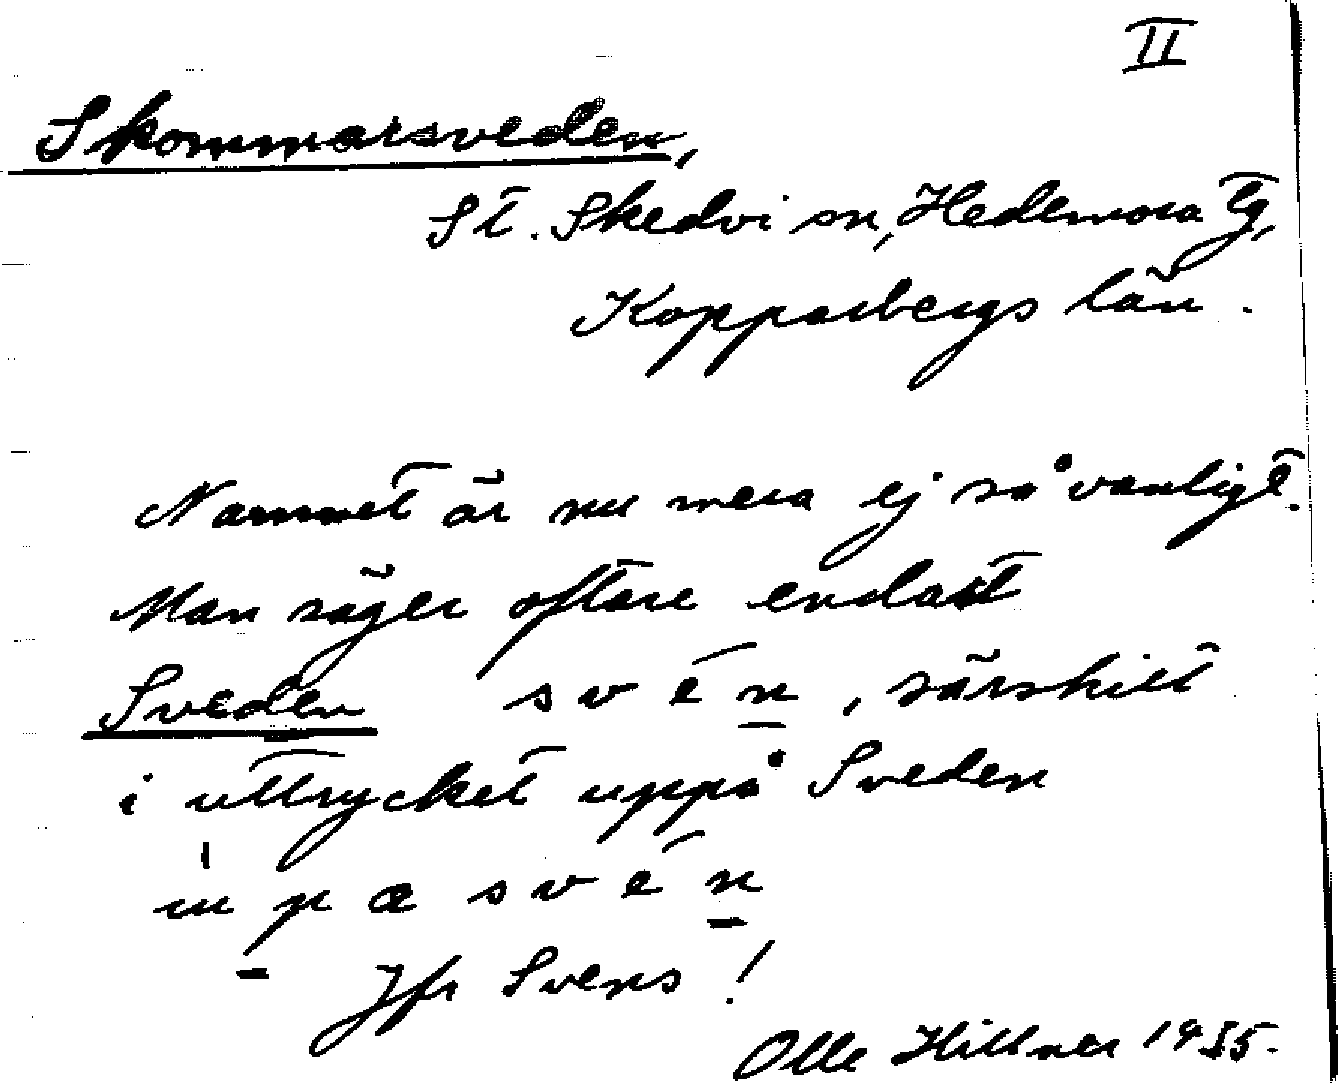 II
Skommarsveden,
St. Skedvi sn, Hedemora tg,
Kopparbergs län.
Namnet är nu mera ej så vanligt.
Man säger oftare endast
Sveden s v é n, särskilt
i uttrycket uppå Sveden
u p a s v é n
Jfr Svens!
Olle Hillner 1955.